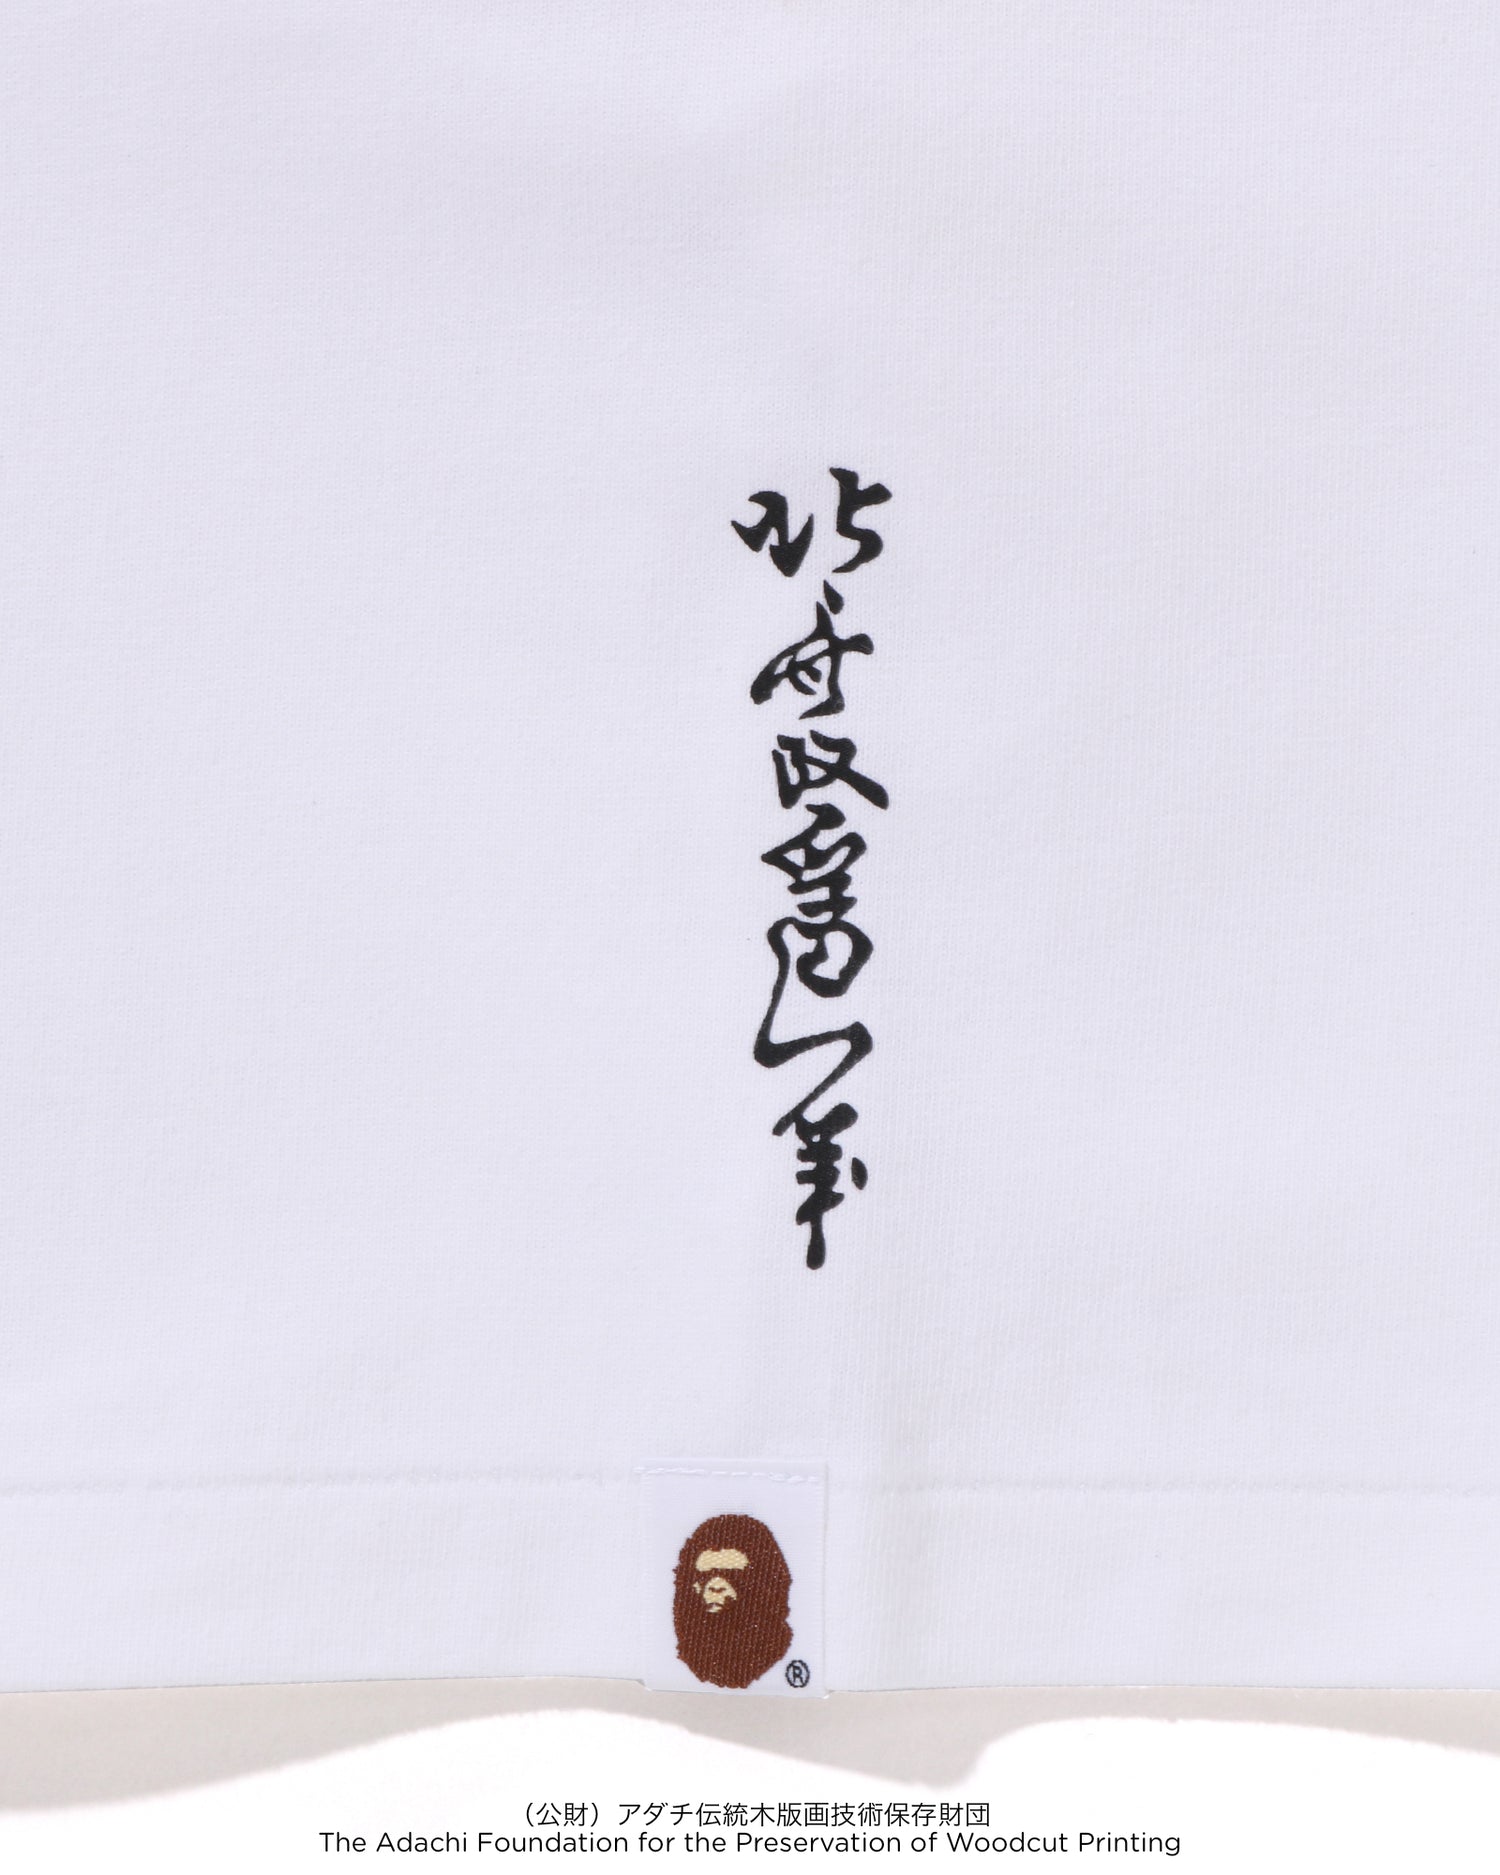 北斎改為一筆
®
（公財）アダチ伝統木版画技術保存財団
The Adachi Foundation for the Preservation of Woodcut Printing